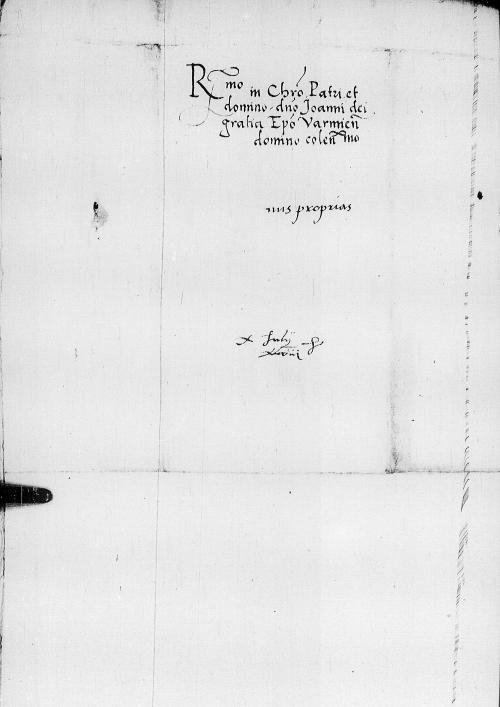 Rmo in Chro Patri et
domino dno Joanni dei
gratia Epo Varmien
domino colenmo
nus proprias
x July